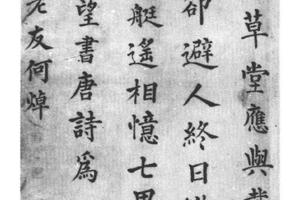 草堂應與
卻避人終日
艇遙相憶七
望書唐詩為
老友何焯